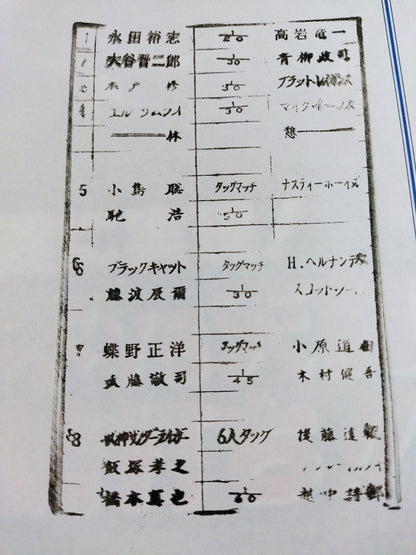 1 永田裕志 1/20 高岩竜一
大谷晋二郎 1/30 青柳政司
3 木戸修 1/30 ブラット
4 エル サムライ 1/30 マイク
休 憩
5 小島聡 タッグマッチ ナスティーボーイズ
馳浩 1/50
6 ブラックキャット タッグマッチ H.ヘルナンデス
藤波辰爾 1/30 スコットソー
7 蝶野正洋 タッグマッチ 小原道由
武藤敬司 1/45 木村健吾
8 6人タッグ 後藤達俊
飯塚孝之
橋本真也 1/60 越中詩郎